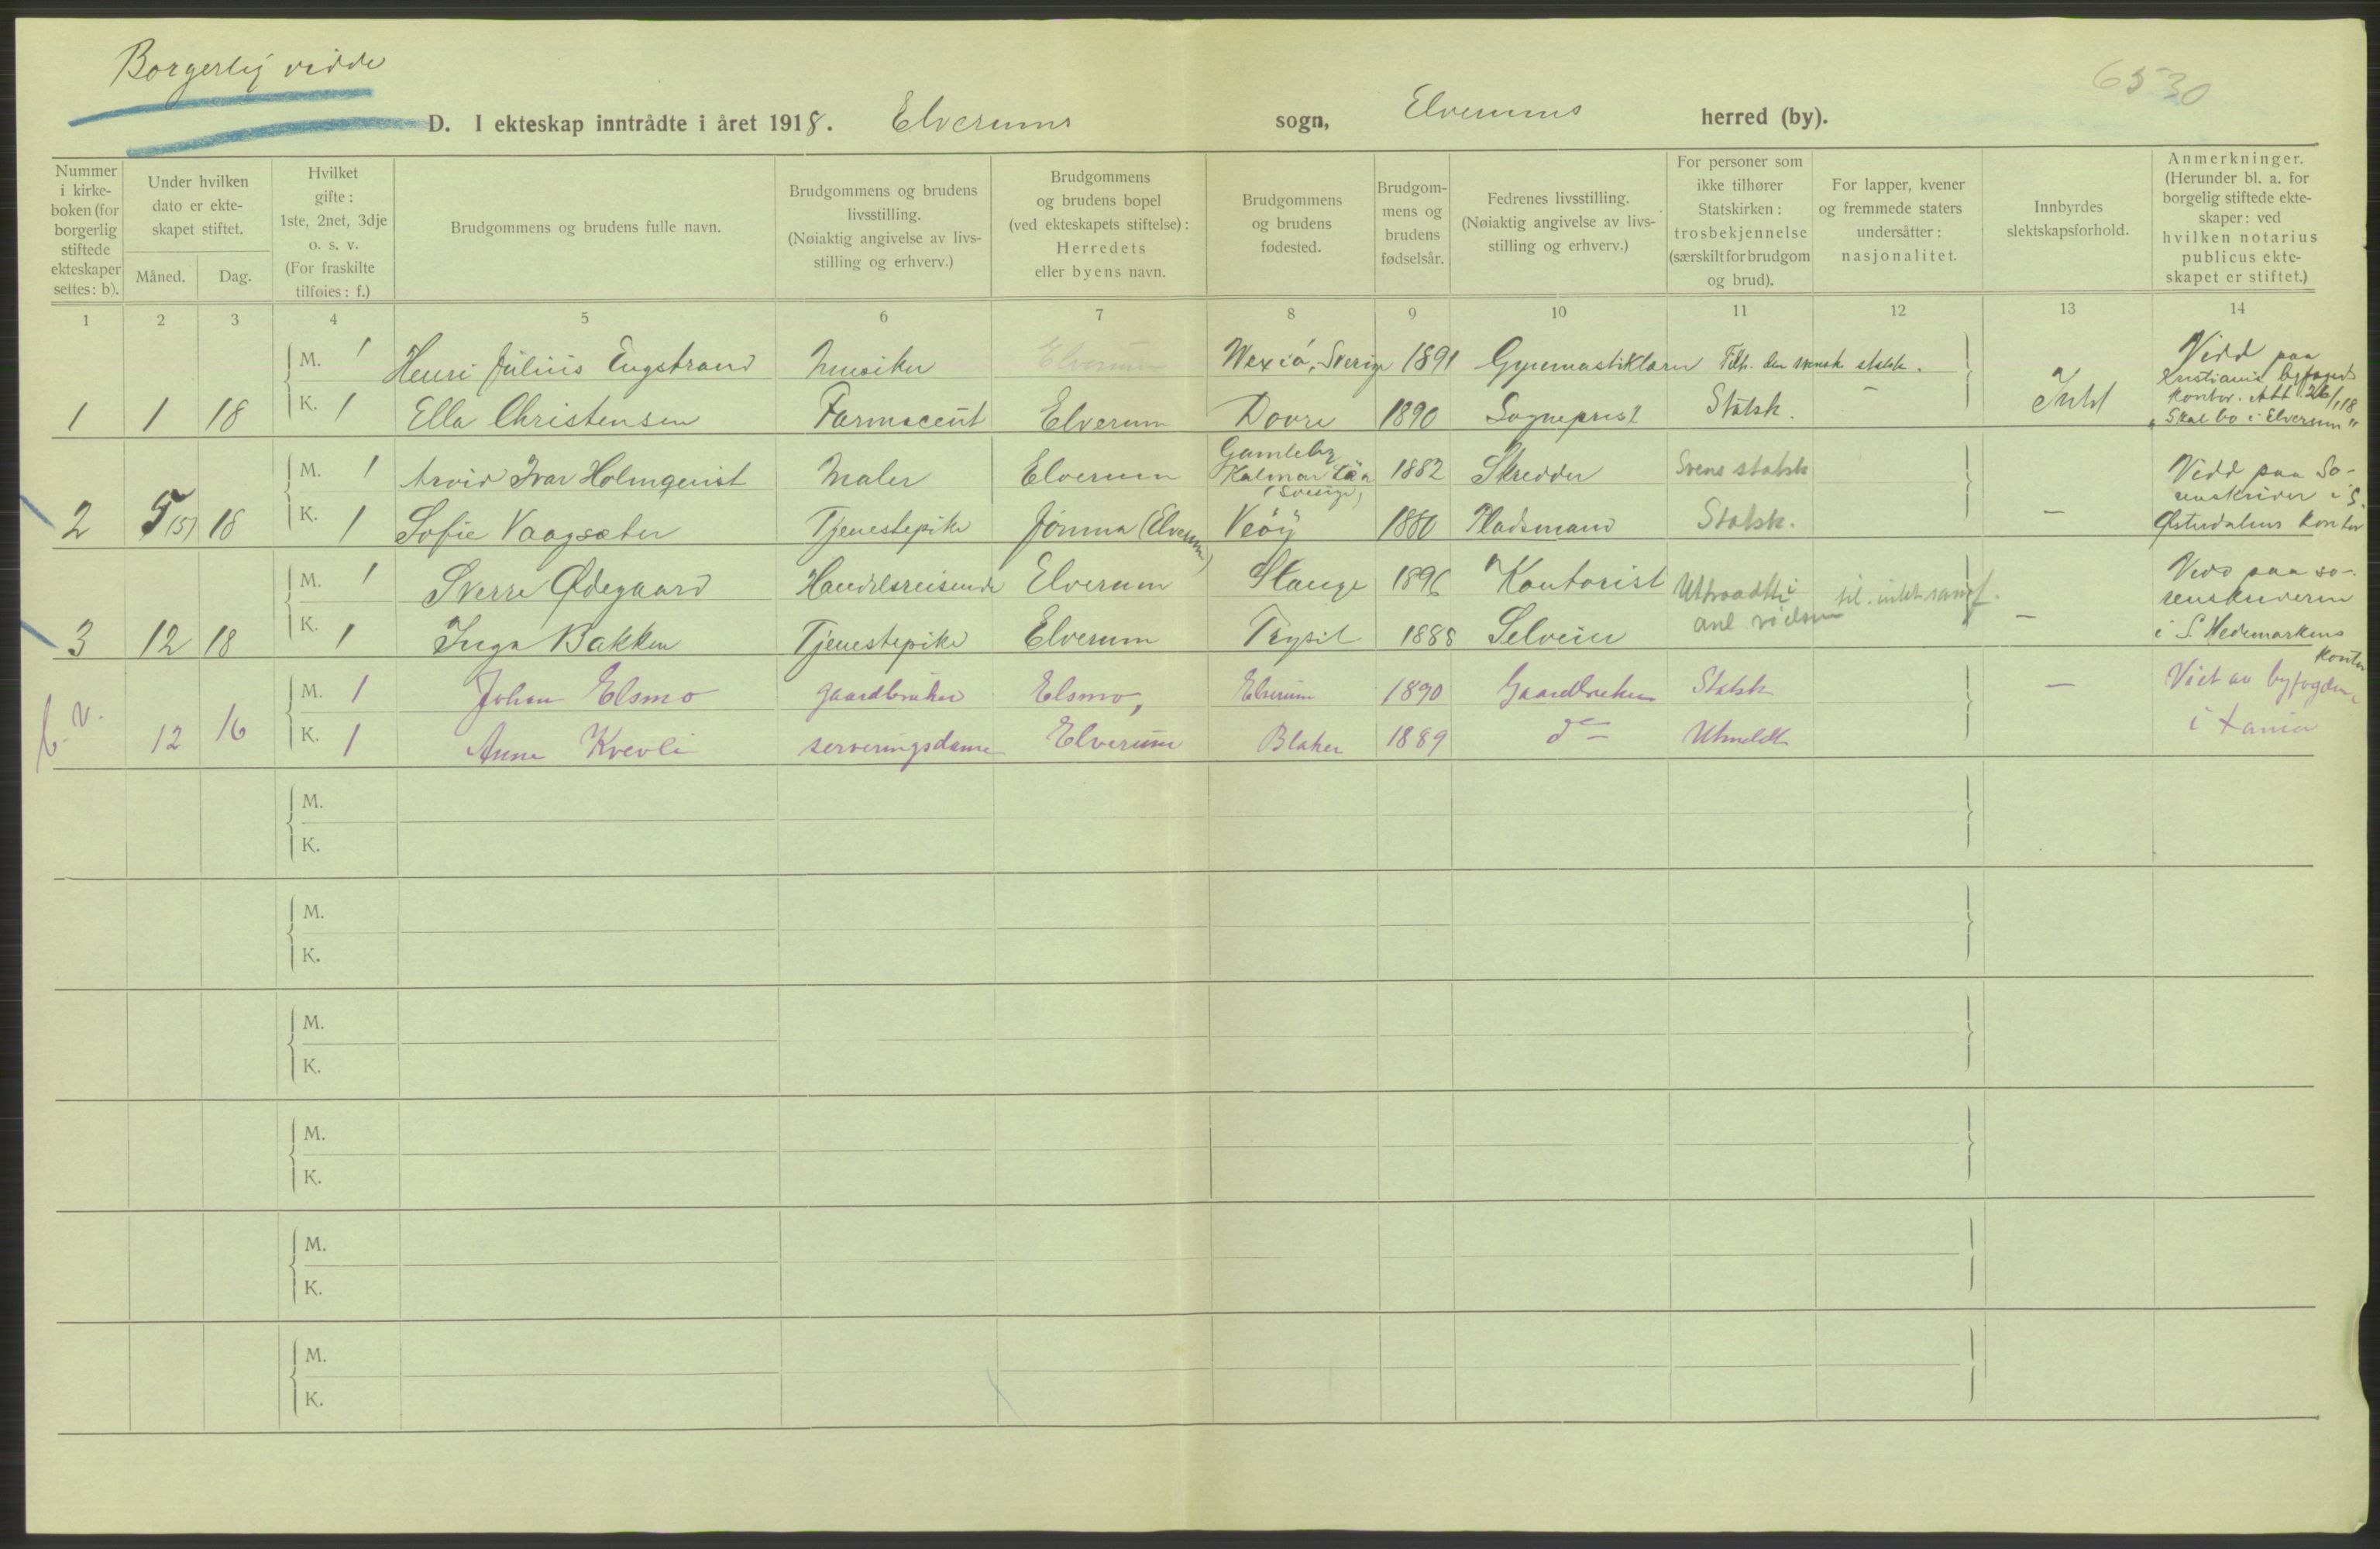 Borgerlig viede
6530
D. I ekteskap inntrådte i året 1918. Elverums sogn, Elverums herred (by).
Nummer i kirkeboken (for borgerlig stiftede ekteskaper settes: b).
Under hvilken dato er ekteskapet stiftet.
Måned. Dag.
Hvilket gifte: 1ste, 2net, 3dje o. s. v. (For fraskilte tilføies: f.)
Brudgommens og brudens fulle navn.
Brudgommens og brudens livsstilling. (Nøiaktig angivelse av livsstilling og erhverv.)
Brudgommens og brudens bopel (ved ekteskapets stiftelse): Herredets eller byens navn.
Brudgommens og brudens fødested.
Brudgommens og brudens fødselsår.
Fedrenes livsstilling. (Nøiaktig angivelse av livsstilling og erhverv.)
For personer som ikke tilhører Statskirken: trosbekjennelse (særskilt for brudgom og brud).
For lapper, kvener og fremmede staters undersåtter: nasjonalitet.
Innbyrdes slektskapsforhold.
Anmerkninger. (Herunder bl. a. for borgelig stiftede ekteskaper: ved hvilken notarius publicus ekteskapet er stiftet.)
1 2 3 4 5 6 7 8 9 10 11 12 13 14
M. 1 Henri Julius Engstrand Musiker Elverum Wexiö, Sverige 1891 Gymnastiklærer Tilh. den svensk statsk.
1 1 18 K. 1 Ella Christensen Farmaceut Elverum Dovre 1890 Sogneprest Statsk. –
Vidd paa
Kristiania byfogeds
kontor. Att 26/1 18
"Skal bo i Elverum"
M. 1 Arvid Ivar Holmqvist Maler Elverum Gamleby Kalmar Län (Sverige) 1882 Skredder Svens statsk
2 5 (5) 18 K. 1 Sofie Vaagsæter Tjenestepike Jømna (Elverum) Veöy 1880 Pladsmand Statsk. –
Vidd paa So-
renskriver i S.
Østerdalens kontor
M. 1 Sverre Ødegaard Handelsreisende Elverum Stange 1896 Kontorist Uttraadt i
3 12 18 K. 1 Inga Bakken Tjenestepike Elverum Trysil 1888 Selveier –
Vidd paa so-
renskriveren
i S. Hedemarkens
kontor
M. 1 Johan Elsmo gaardbruker Elsmo, Elverum 1890 Gaardbruker Statsk –
b. v. 12 16 K. 1 Anna Kvevli serveringsdame Elverum Blaker 1889 do Utmeldt
Viet av byfogden
i Xania
M.
K.
M.
K.
M.
K.
M.
K.
M.
K.
M.
K.